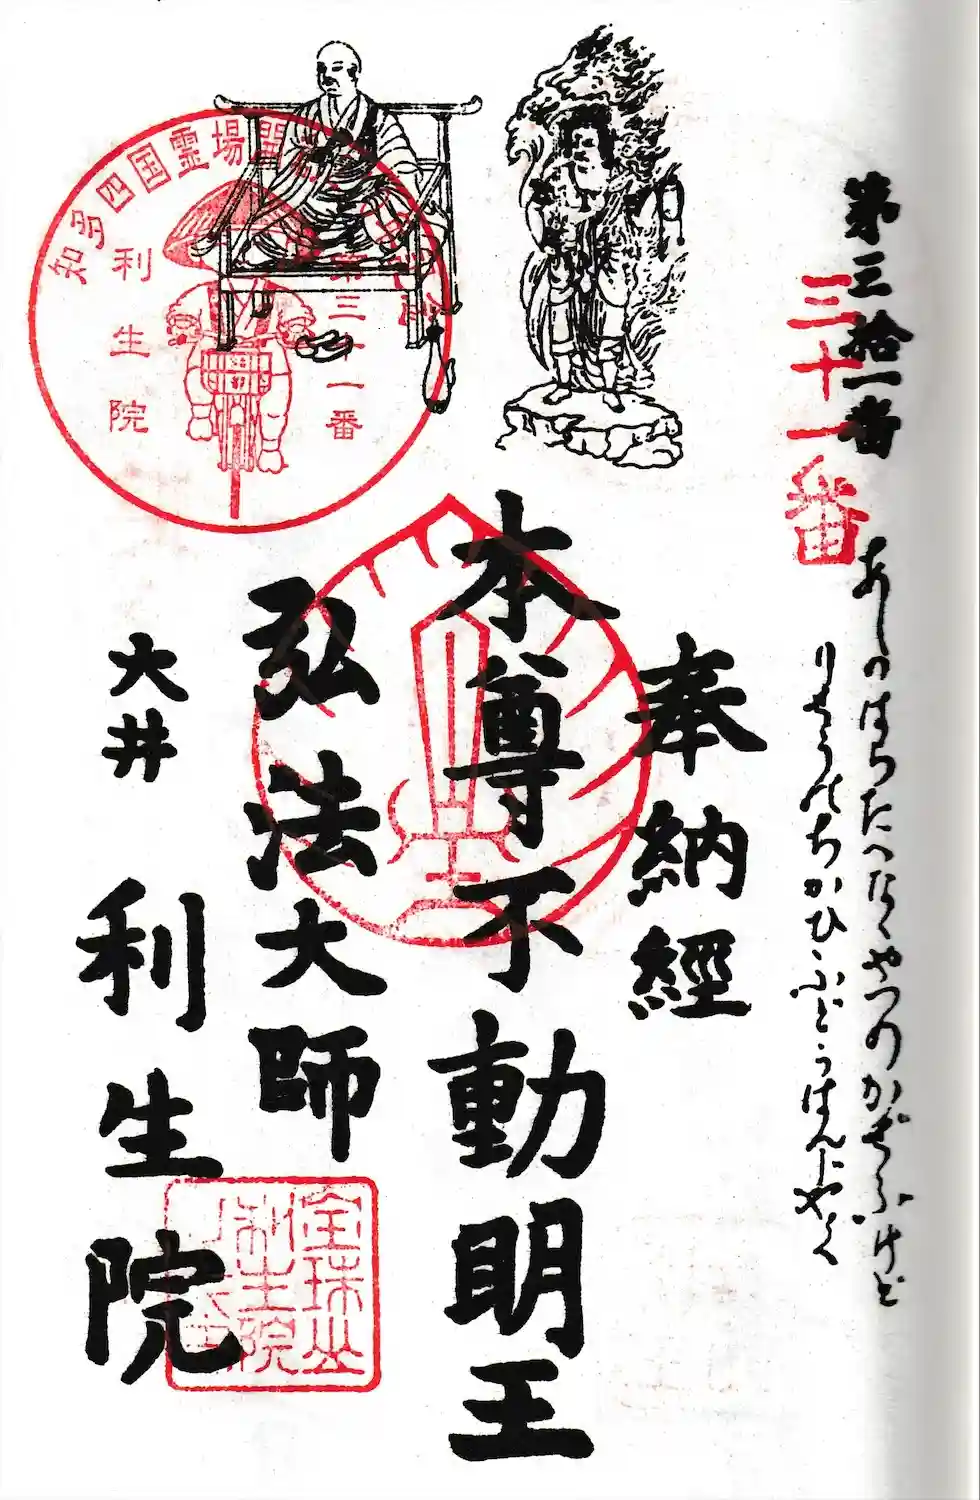 第三拾一番
三十一番
あしのはらたへなくやつのかぜふけど
りせうのちかひふどうはんじやく
奉納經
本尊不動明王
弘法大師
大井 利生院
知多四国霊場開
第三十一番
利生院
宝珠山
利生院